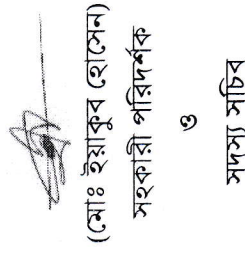 (মোঃ ইয়াকুব হোসেন)
সহকারী পরিদর্শক
ও
সদস্য সচিব